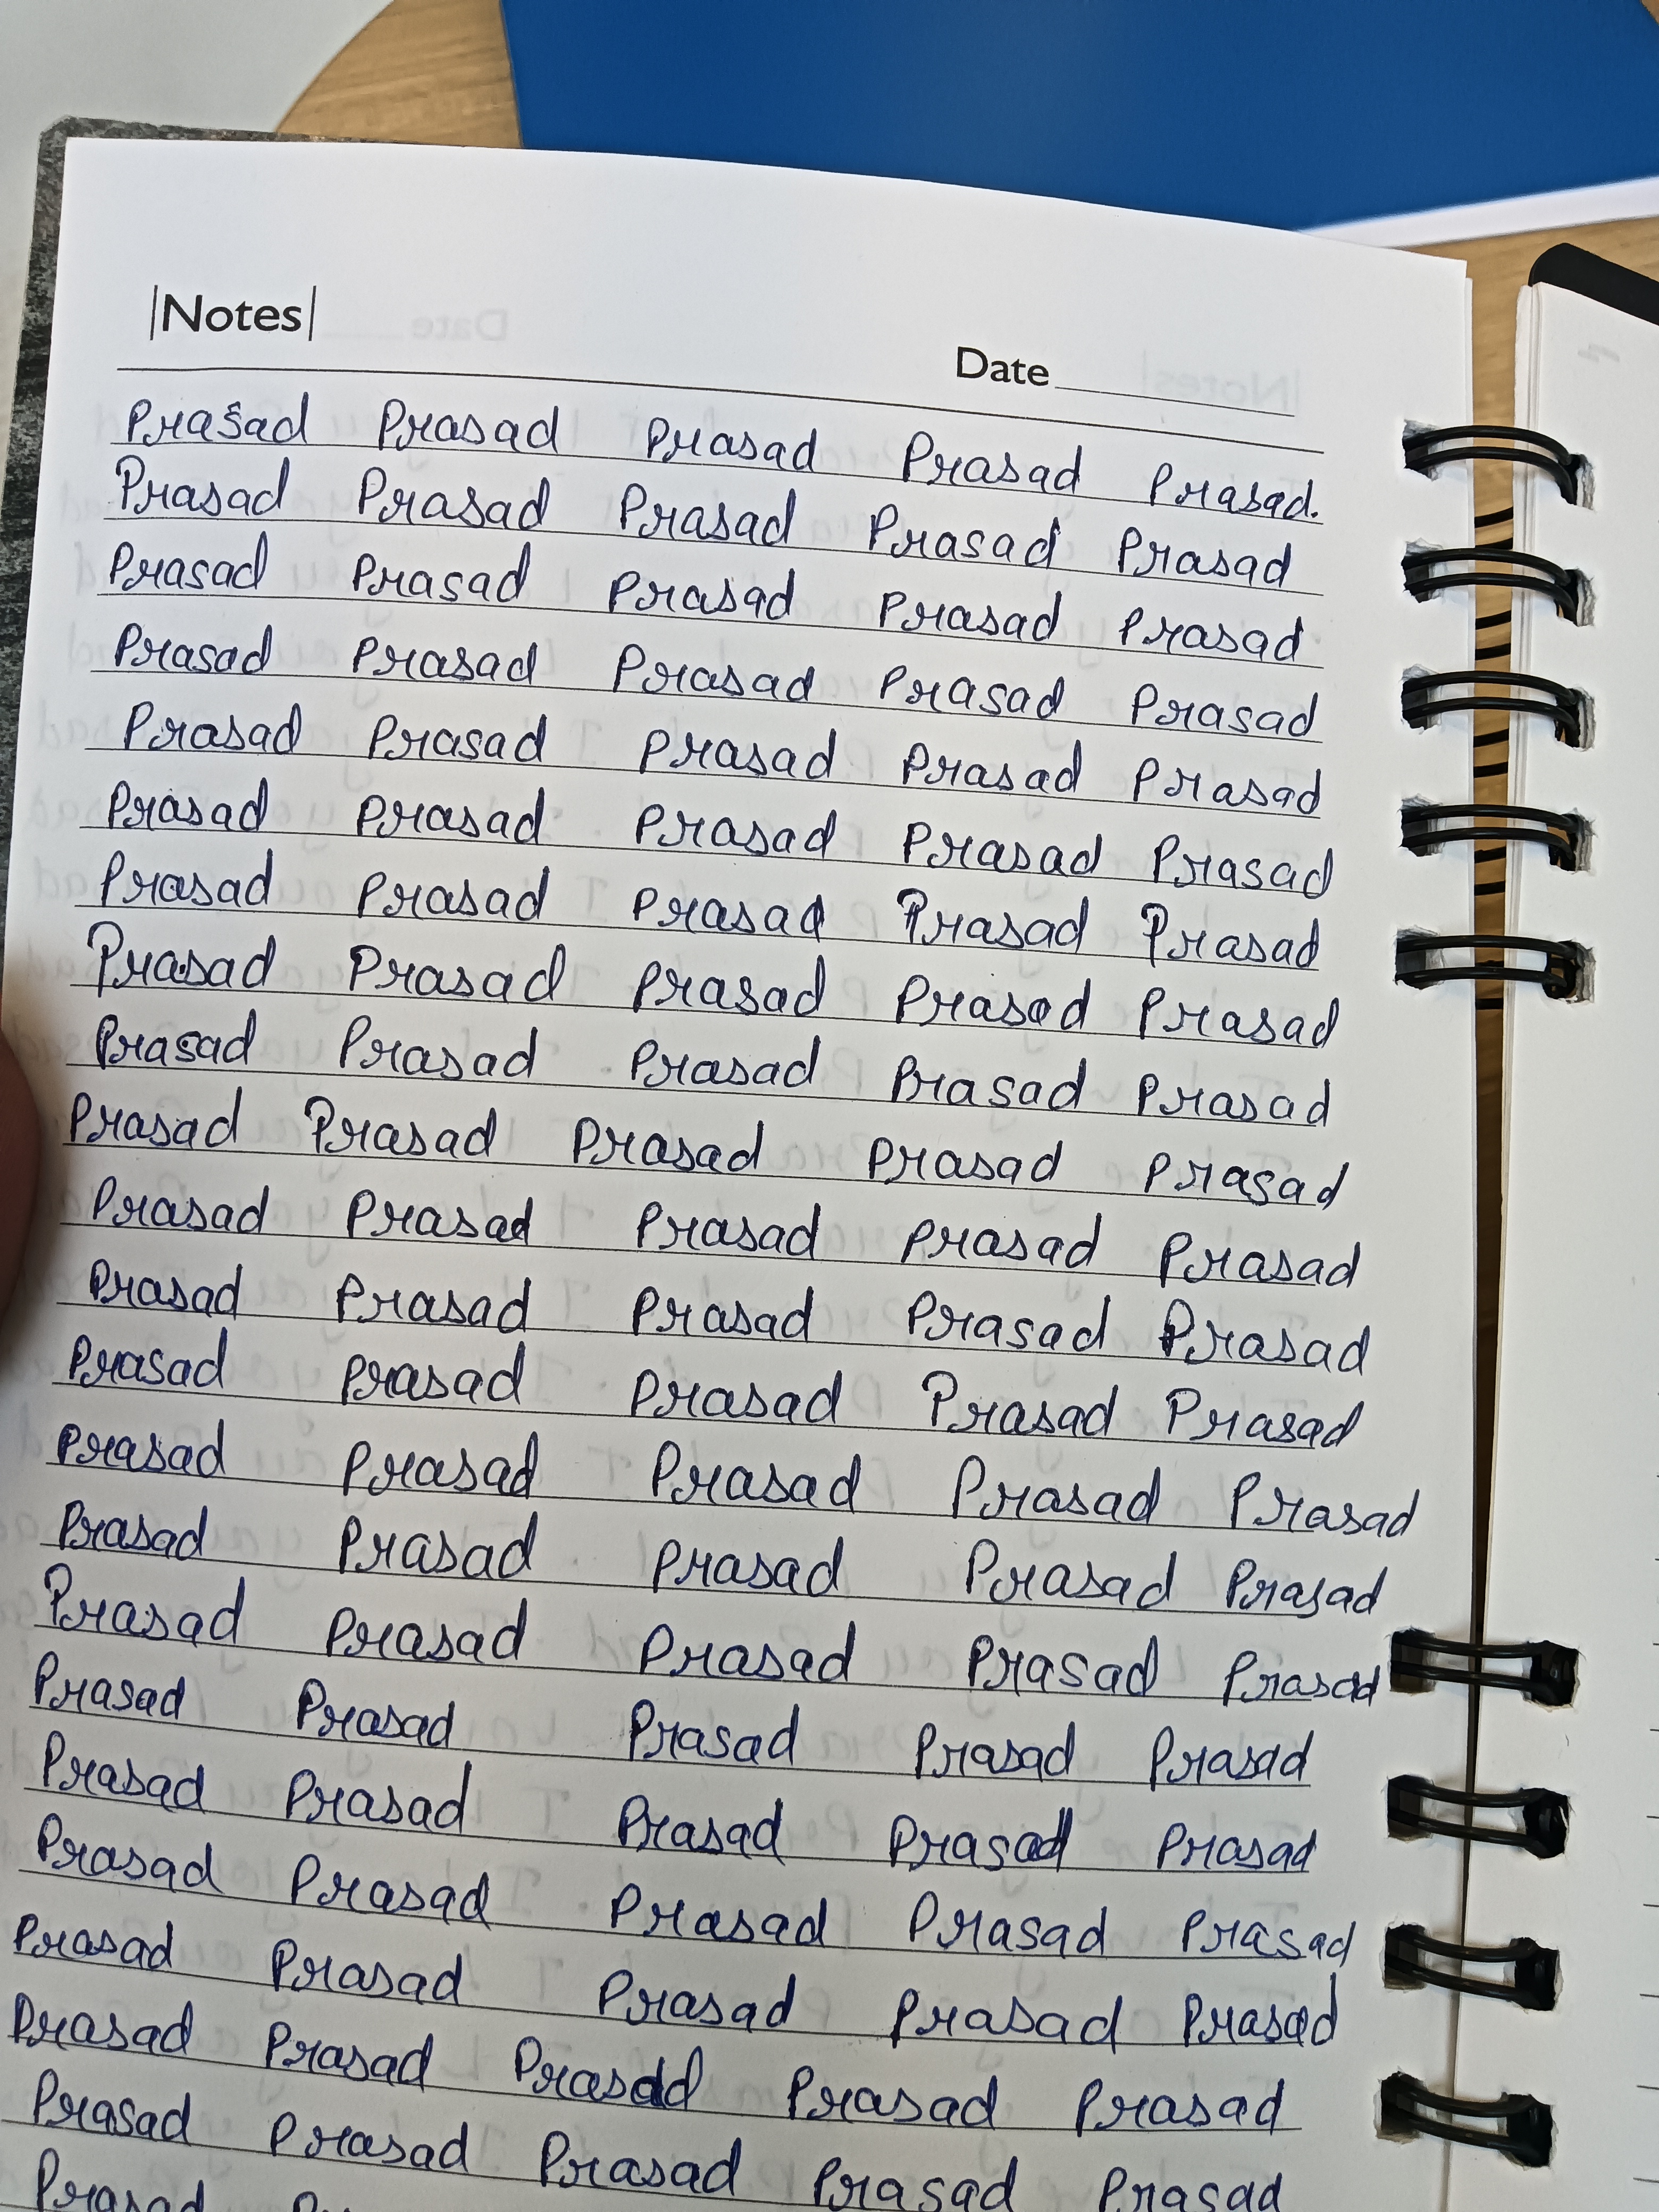 |Notes|
Date
Prasad Prasad Prasad Prasad Prasad.
Prasad Prasad Prasad Prasad Prasad
Prasad Prasad Prasad Prasad Prasad
Prasad Prasad Prasad Prasad Prasad
Prasad Prasad Prasad Prasad Prasad
Prasad Prasad Prasad Prasad Prasad
Prasad Prasad Prasad Prasad Prasad
Prasad Prasad Prasad Prasad Prasad
Prasad Prasad Prasad Prasad Prasad
Prasad Prasad Prasad Prasad Prasad
Prasad Prasad Prasad Prasad Prasad
Prasad Prasad Prasad Prasad Prasad
Prasad Prasad Prasad Prasad Prasad
Prasad Prasad Prasad Prasad Prasad
Prasad Prasad Prasad Prasad Prasad
Prasad Prasad Prasad Prasad Prasad
Prasad Prasad Prasad Prasad Prasad
Prasad Prasad Prasad Prasad Prasad
Prasad Prasad Prasad Prasad Prasad
Prasad Prasad Prasad Prasad Prasad
Prasad Prasad Prasad Prasad Prasad
Prasad Prasad Prasad Prasad Prasad
Prasad